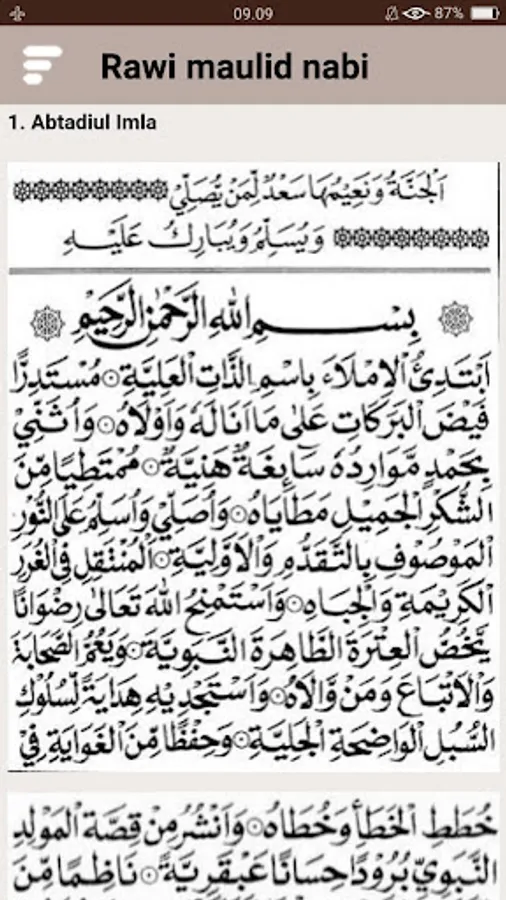 09.09
87%
Rawi maulid nabi
1. Abtadiul Imla
اَلْجَنَّةُ وَنَعِيْمُهَا سَعْدٌ لِمَنْ يُصَلِّيْ
وَيُسَلِّمُ وَيُبَارِكُ عَلَيْهِ
بِسْمِ اللهِ الرَّحْمٰنِ الرَّحِيْمِ
اَبْتَدِئُ الْاِمْلَاءَ بِاسْمِ الذَّاتِ الْعَلِيَّةِ ۞ مُسْتَدِرًّا
فَيْضَ الْبَرَكَاتِ عَلٰى مَا اَنَالَهُ وَاَوْلَاهُ ۞ وَاُثَنِّيْ
بِحَمْدٍ مَّوَارِدُهُ سَآئِغَةٌ هَنِيَّةٌ ۞ مُمْتَطِيًا مِّنَ
الشُّكْرِ الْجَمِيْلِ مَطَايَاهُ ۞ وَاُصَلِّيْ وَاُسَلِّمُ عَلَى النُّوْرِ
الْمَوْصُوْفِ بِالتَّقَدُّمِ وَالْاَوَّلِيَّةِ ۞ اَلْمُنْتَقِلِ فِي الْغُرَرِ
الْكَرِيْمَةِ وَالْجِبَاهِ ۞ وَاَسْتَمْنِحُ اللهَ تَعَالٰى رِضْوَانًا
يَّخُصُّ الْعِتْرَةَ الطَّاهِرَةَ النَّبَوِيَّةَ ۞ وَيَعُمُّ الصَّحَابَةَ
وَالْاَتْبَاعَ وَمَنْ وَّالَاهُ ۞ وَاَسْتَجْدِيْهِ هِدَايَةً لِّسُلُوْكِ
السُّبُلِ الْوَاضِحَةِ الْجَلِيَّةِ ۞ وَحِفْظًا مِّنَ الْغَوَايَةِ فِيْ
خُطَطِ الْخَطَأِ وَخُطَاهُ ۞ وَاَنْشُرُ مِنْ قِصَّةِ الْمَوْلِدِ
النَّبَوِيِّ بُرُوْدًا حِسَانًا عَبْقَرِيَّةً ۞ نَاظِمًا مِّنَ